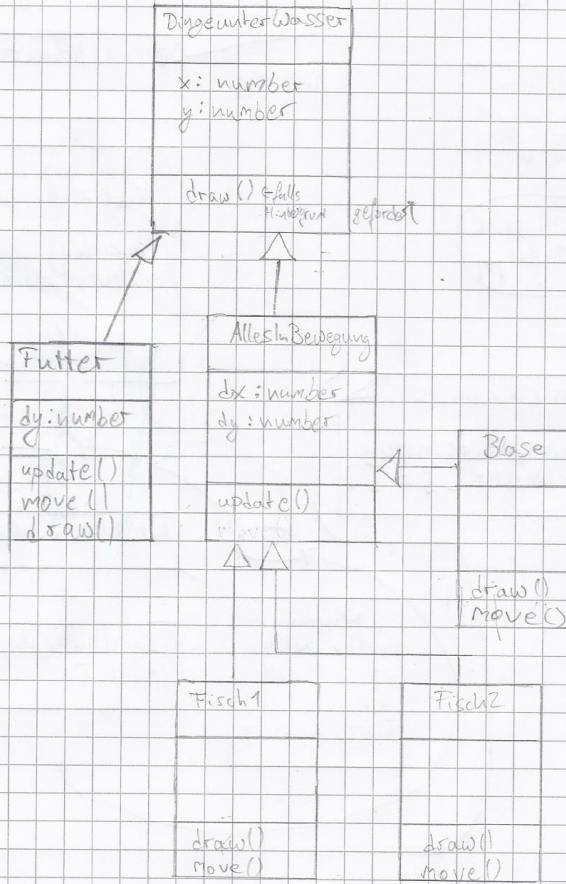 DingeunterWasser
x: number
y: number
draw() ← falls
Hintergrund gefordert
Futter
dy: number
update()
move()
draw()
AllesInBewegung
dx: number
dy: number
update()
move()
Blase
draw()
move()
Fisch1
draw()
move()
Fisch2
draw()
move()